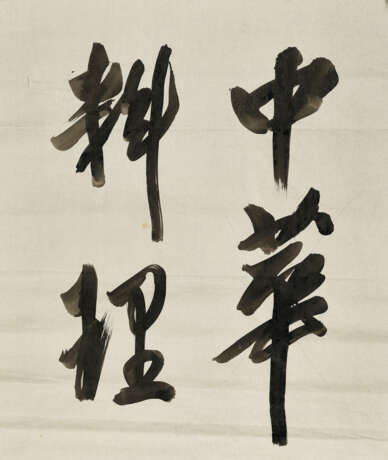 中華
料理